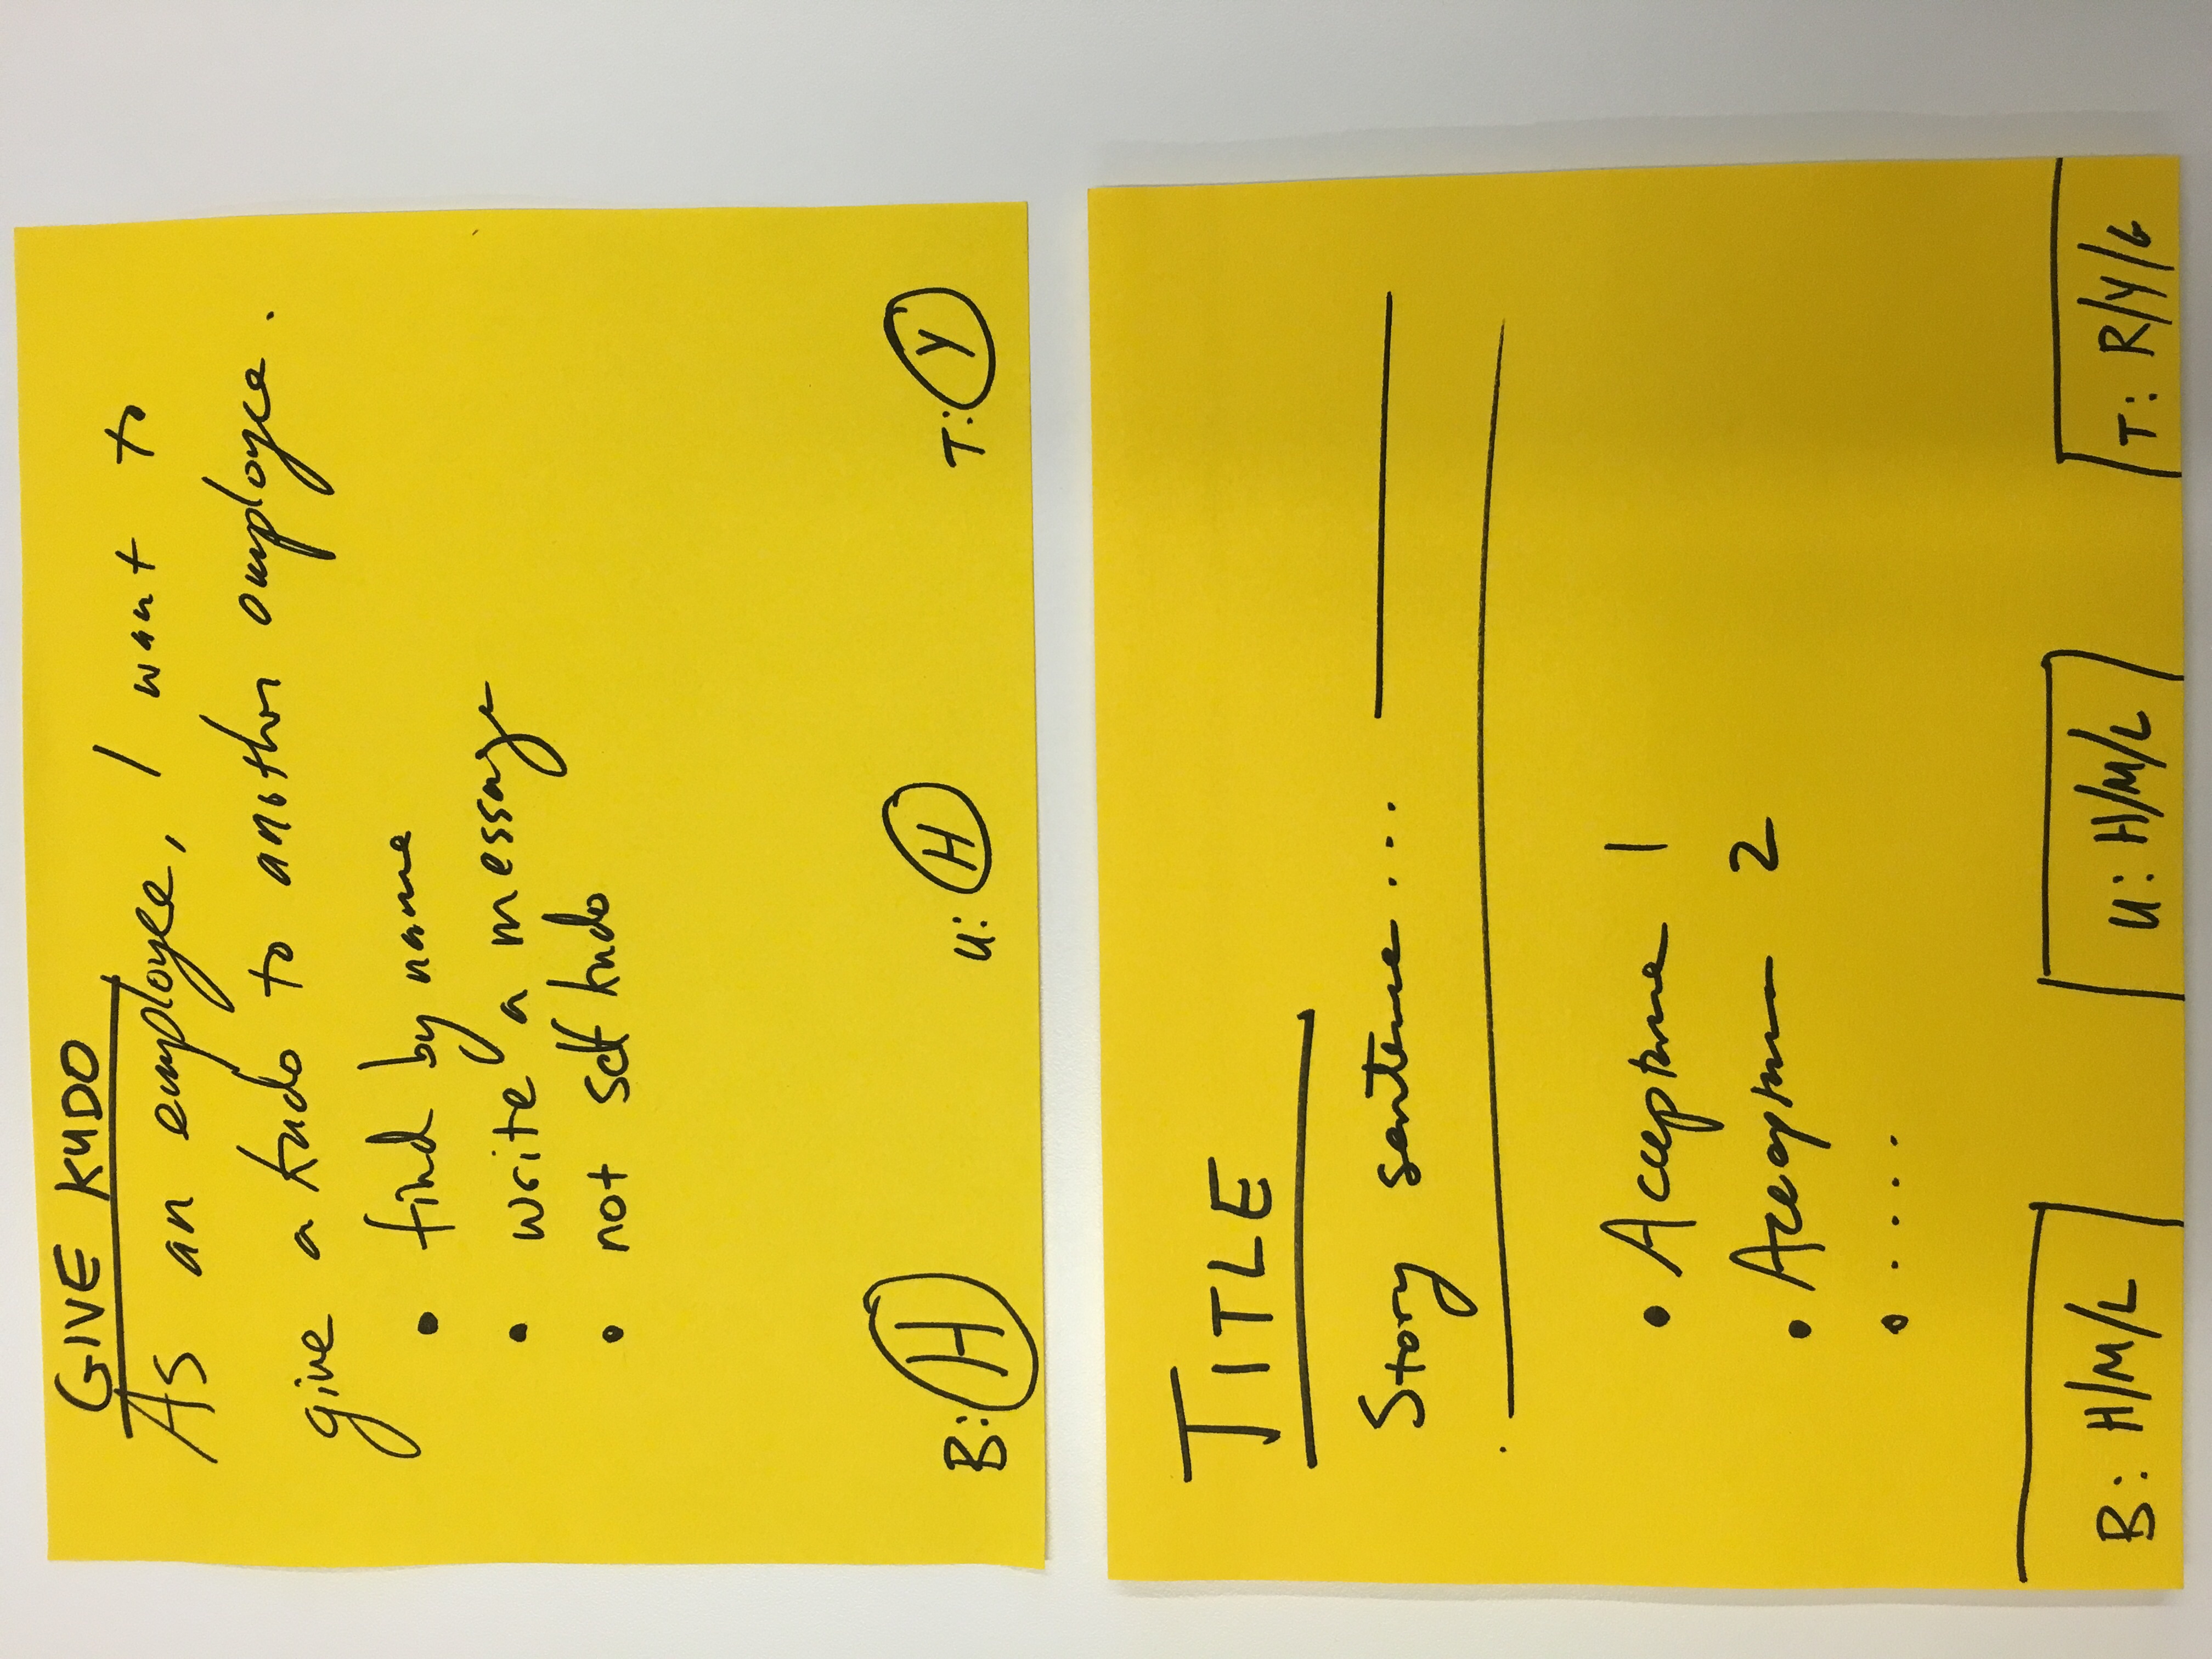 GIVE KUDO
As an employee, I want to
give a kudo to another employee.
• find by name
• write a message
• not self kudo
B: H U: H T: Y
TITLE
Story sentence...
• Acceptance 1
• Acceptance 2
• ....
B: H/M/L U: H/M/L T: R/Y/G